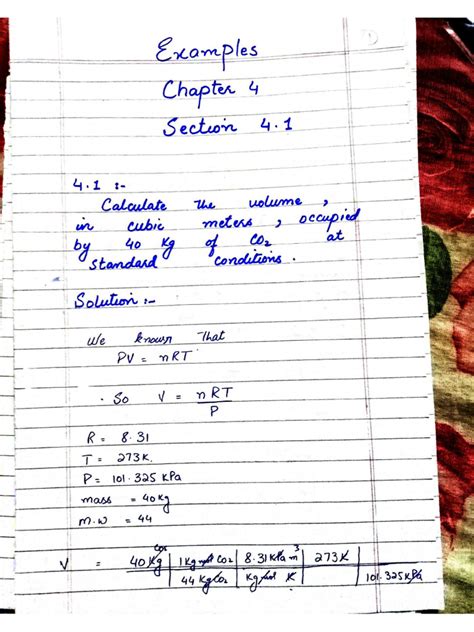 Examples
Chapter 4
Section 4.1
4.1 :-
Calculate the volume ,
in cubic meters , occupied
by 40 Kg of CO2 at
standard conditions .
Solution :-
We known That
PV = nRT
. So V = nRT
P
R = 8.31
T = 273K.
P = 101.325 KPa
mass = 40kg
M.W = 44
V = 40Kg CO2 | 1Kg mol CO2 | 8.31 KPa m3 | 273K
44 Kg CO2 | Kg mol K | 101.325 KPa